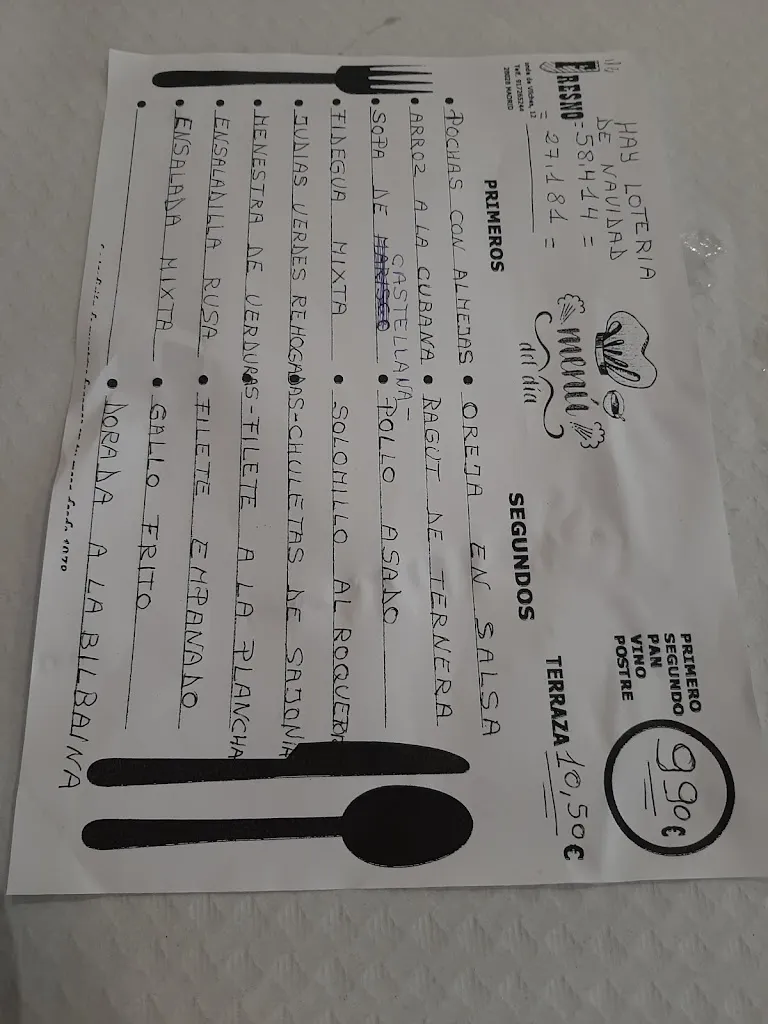 FRESNO
Telf. 917265244
28028 MADRID
HAY LOTERIA
DE NAVIDAD
= 58.414 =
= 27.181 =
menú
del día
PRIMERO
SEGUNDO
PAN
VINO
POSTRE
990€
TERRAZA 10,50€
PRIMEROS
• POCHAS CON ALMEJAS
• ARROZ A LA CUBANA
CASTELLANA-
• SOPA DE MARISCO
• FIDEGUA MIXTA
• JUDIAS VERDES REHOGADAS-
• MENESTRA DE VERDURAS-
• ENSALADILLA RUSA
• ENSALADA MIXTA
•
SEGUNDOS
• OREJA EN SALSA
• RAGUT DE TERNERA
• POLLO ASADO
• SOLOMILLO AL ROQUEFR
• CHULETAS DE SAJONIA
• FILETE A LA PLANCHA
• FILETE EMPANADO
• GALLO FRITO
• DORADA A LA BILBAINA